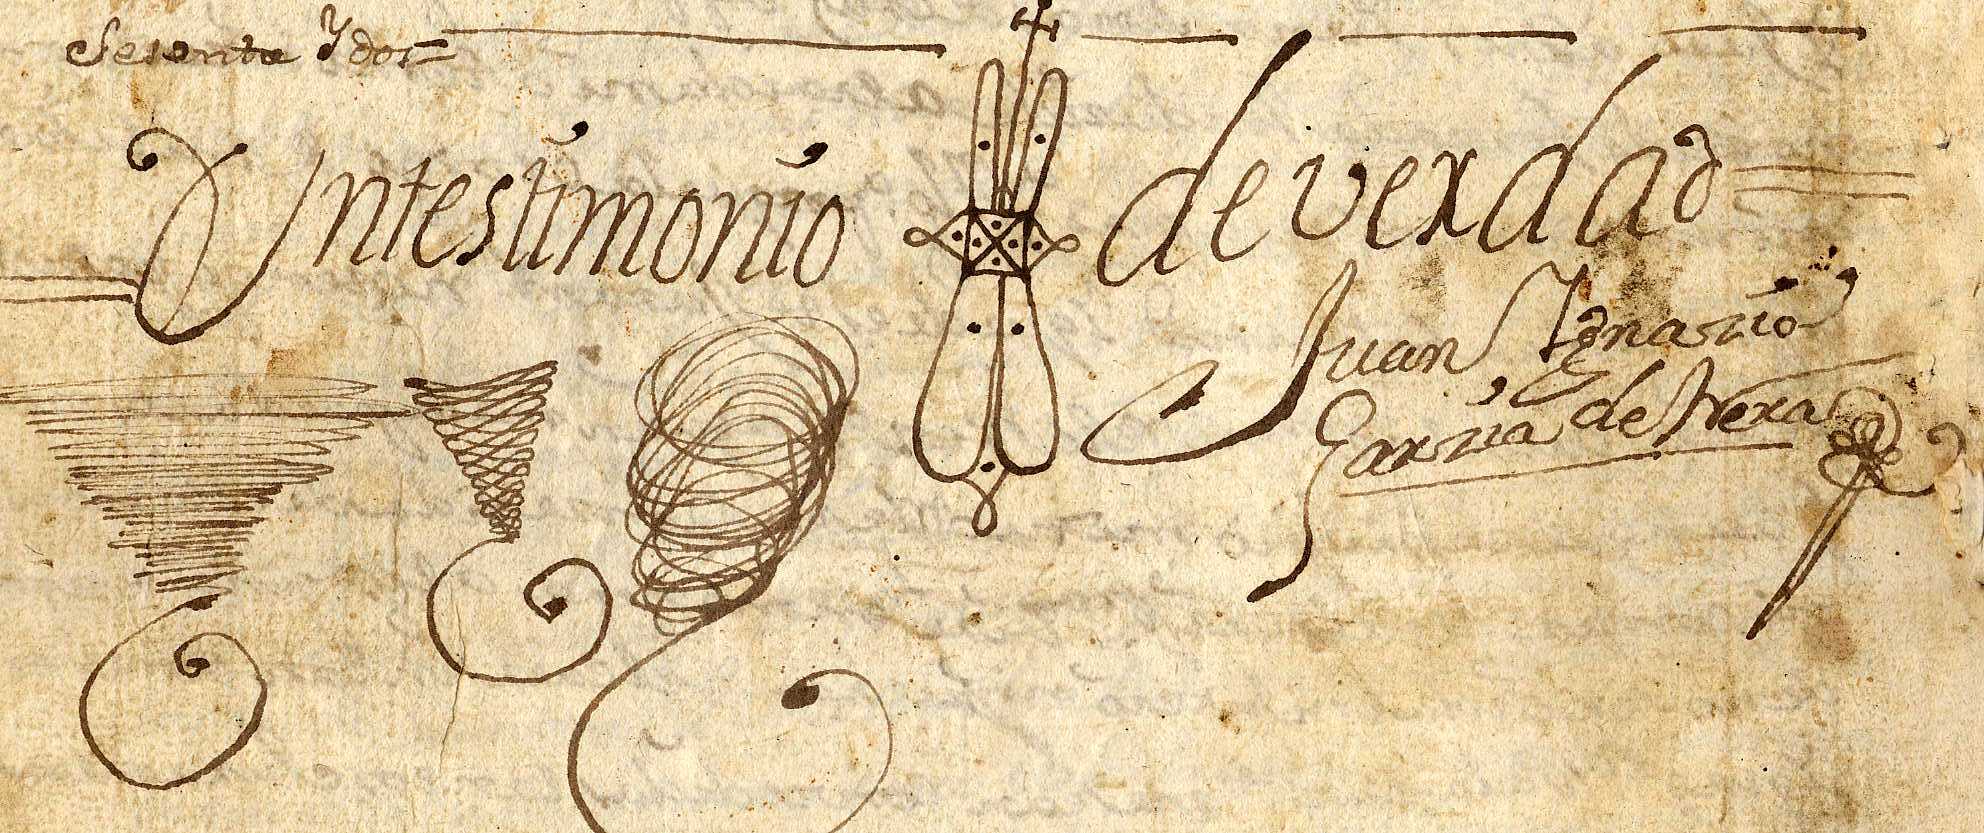 Sesenta Y dos=
Yntestimonio de verdad
Juan Ygnasio
Garsia de